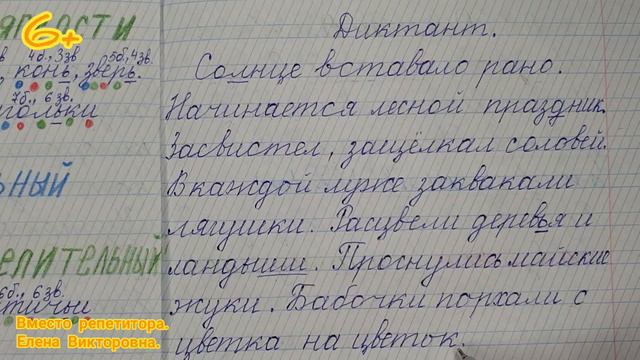 6+
мягкости
4б., 3зв 5б, 4зв.
, конь, зверь.
7б., 6зв.
угольки
ьный
елительный
6б., 6зв.
птичьи
Диктант.
Солнце вставало рано.
Начинается лесной праздник.
Засвистел, защёлкал соловей.
В каждой луже заквакали
лягушки. Расцвели деревья и
ландыши. Проснулись майские
жуки. Бабочки порхали с
цветка на цветок.
Вместо репетитора.
Елена Викторовна.